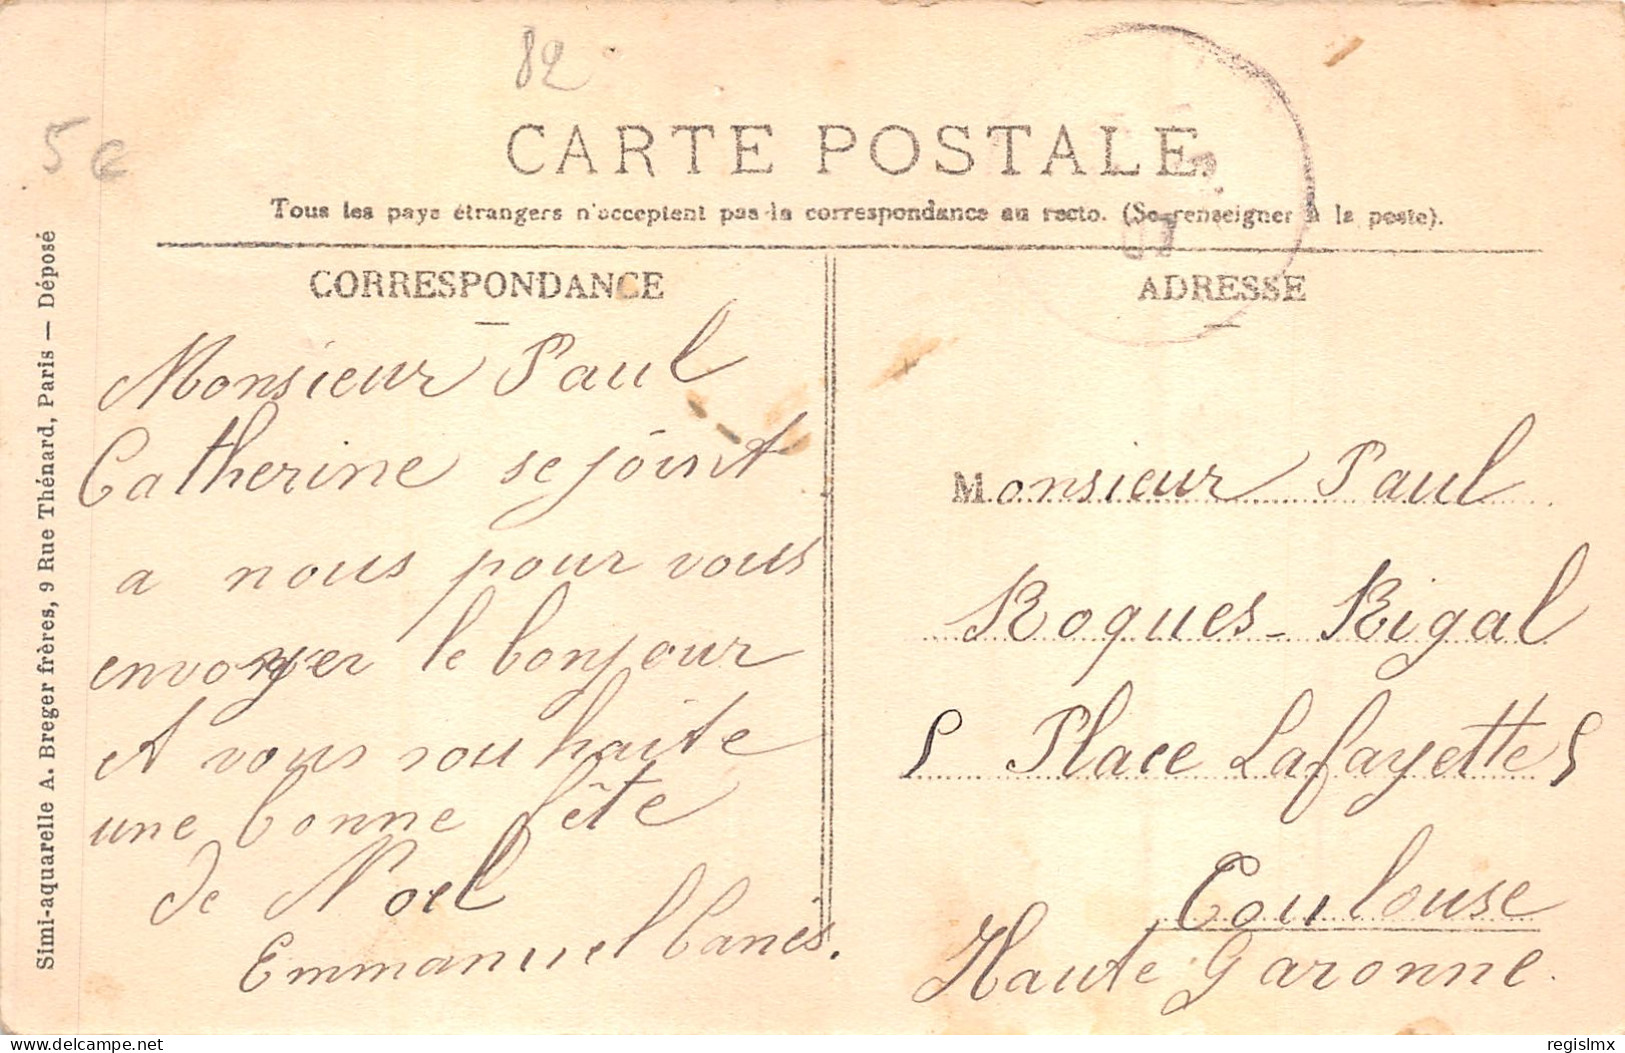 82
5 €
CARTE POSTALE
Tous les pays étrangers n'acceptent pas la correspondance au recto. (Se renseigner à la poste).
07
CORRESPONDANCE
Monsieur Paul
Catherine se joint
a nous pour vous
envoyer le bonjour
et vous souhaite
une bonne fête
de Noel
Emmanuel Canès.
ADRESSE
Monsieur Paul
Roques-Rigal
5 Place Lafayette 5
Toulouse
Haute Garonne.
Simi-aquarelle A. Breger frères, 9 Rue Thénard, Paris — Déposé
delcampe.net
regislmx